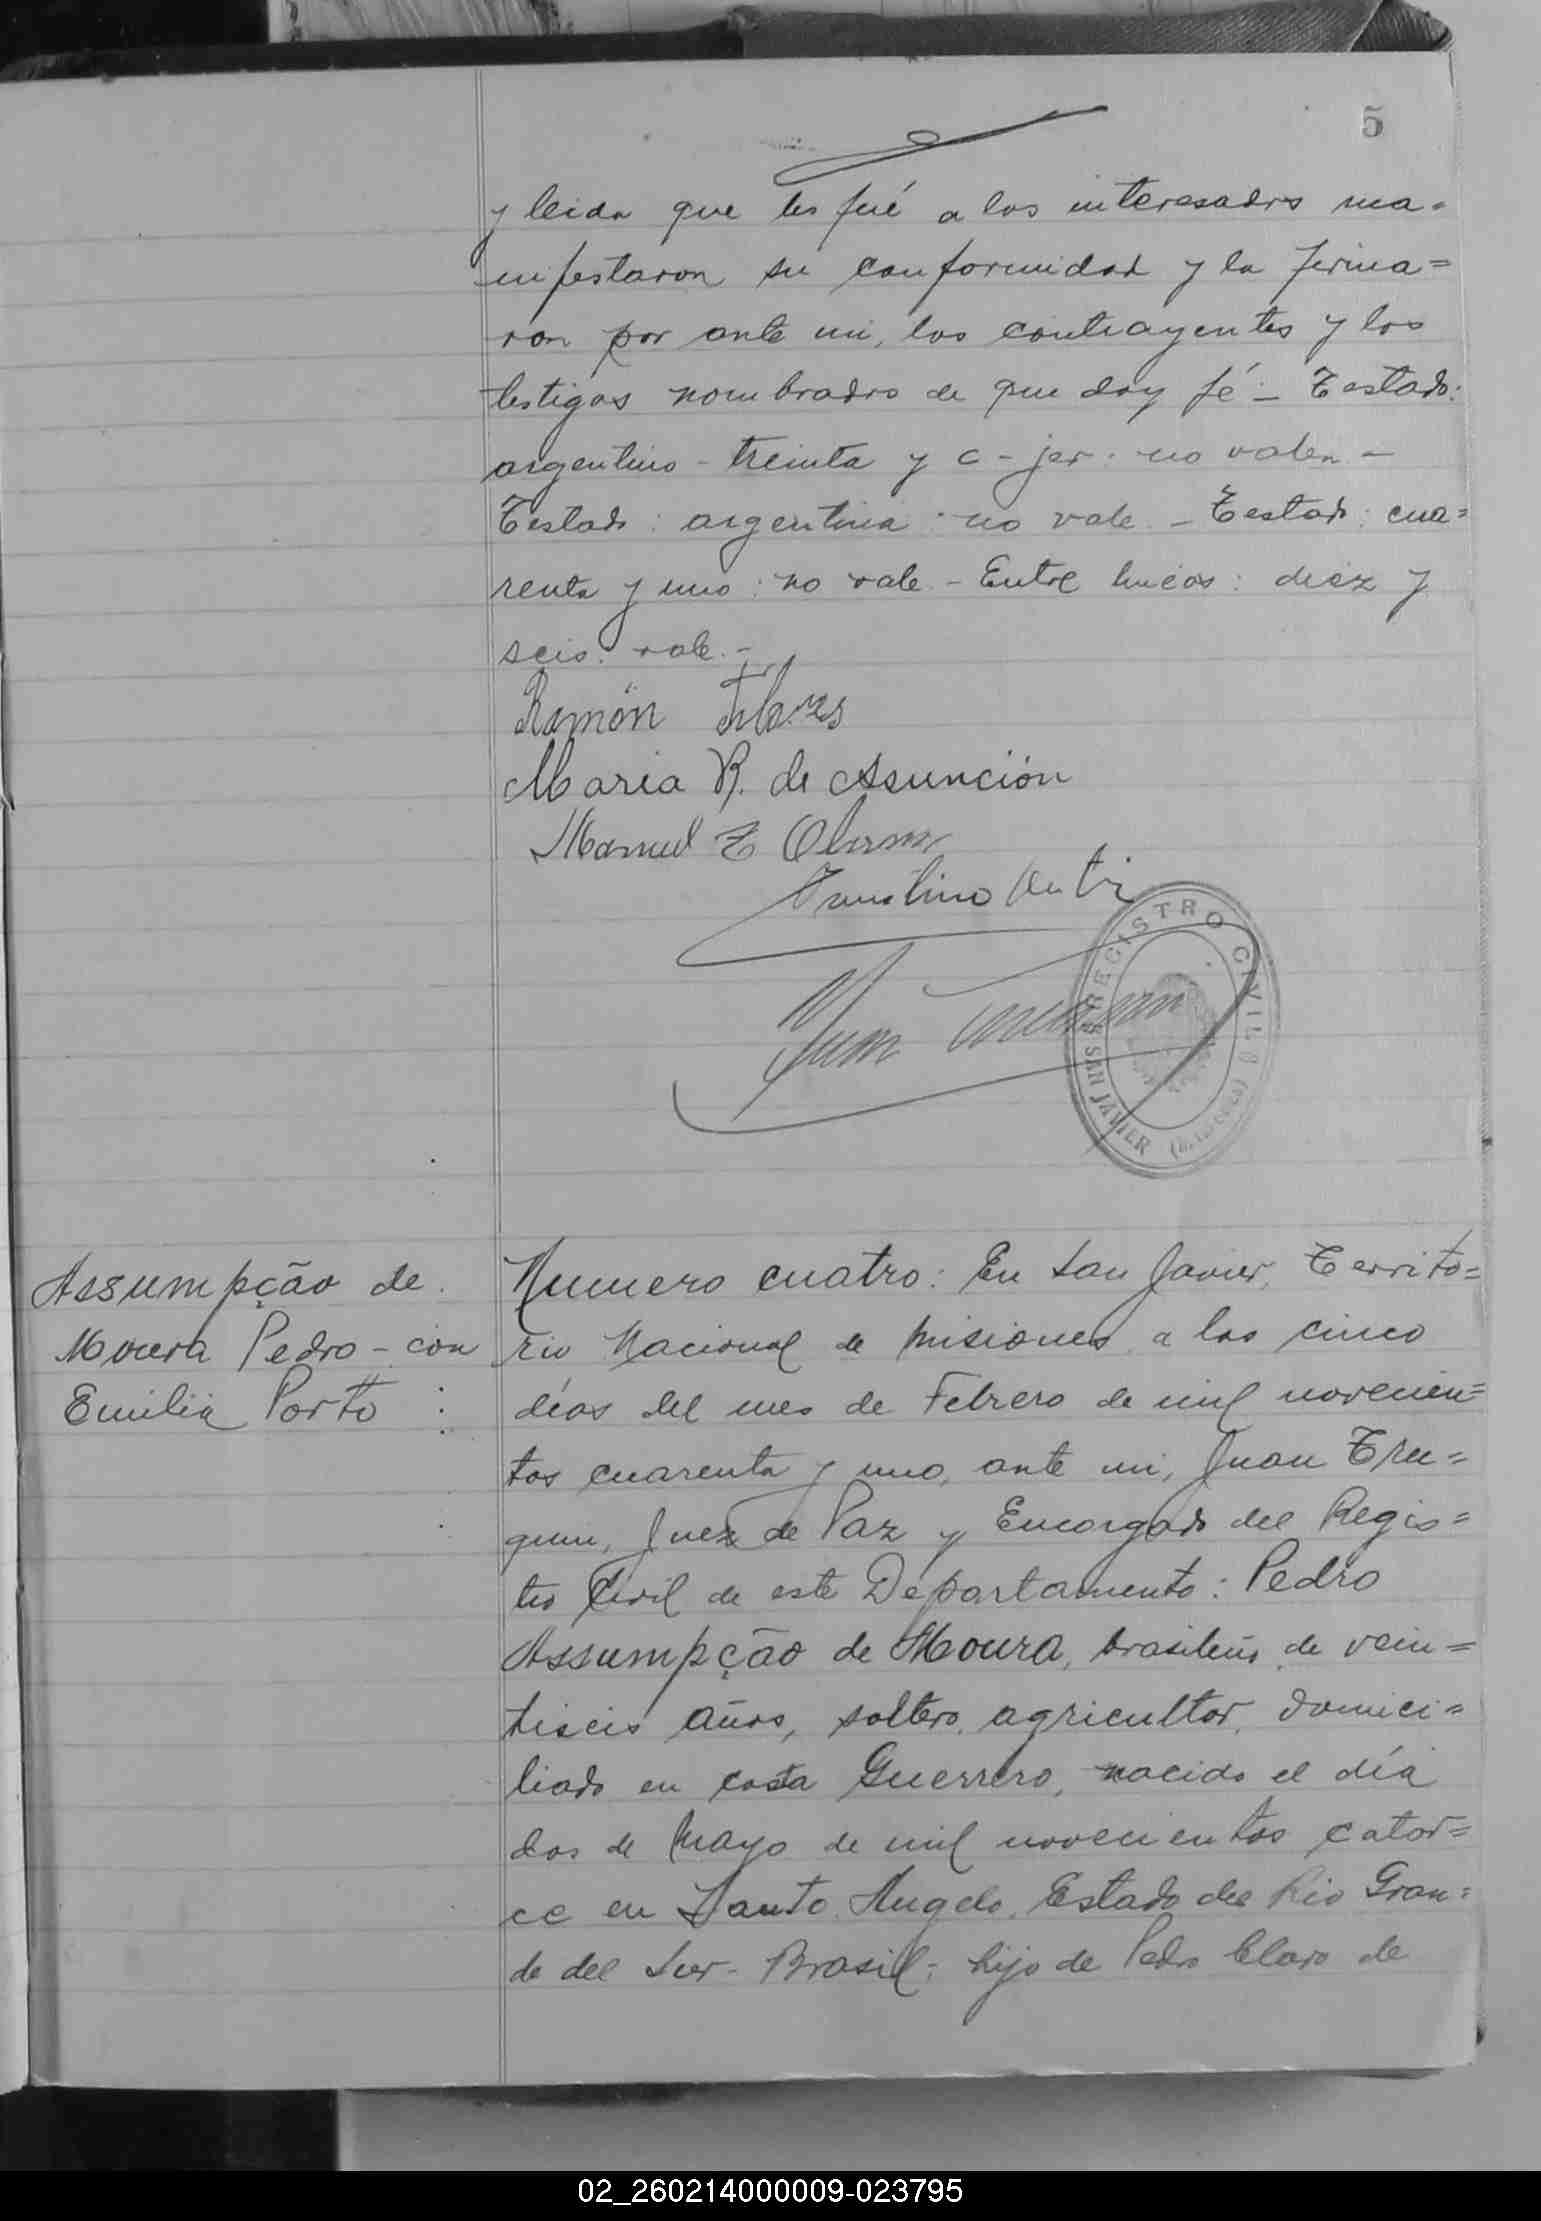 5
y leida que les fué a los interesados ma=
nifestaron su conformidad y la firma=
ron por ante mi, los contrayentes y los
testigos nombrados de que doy fé - Testado:
argentino - treinta y c - jer: no valen -
Testado: argentina: no vale - Testado: cua=
renta y uno: no vale - Entre líneas: diez y
seis: vale. -
Ramón
Maria R. de Asunción
Manuel
Faustino
Juan
REGISTRO CIVIL
SAN JAVIER
Assumpção de
Moura Pedro - con
Emilia Porto :
Numero cuatro: En San Javier, Territo=
rio Nacional de Misiones a los cinco
días del mes de Febrero de mil novecien=
tos cuarenta y uno, ante mi, Juan
Juez de Paz y Encargado del Regis=
tro Civil de este Departamento: Pedro
Assumpção de Moura, brasileño, de vein=
tiseis años, soltero, agricultor, domici=
liado en costa Guerrero, nacido el día
dos de Mayo de mil novecientos cator=
ce en Santo Angelo, Estado del Rio Gran=
de del Sur - Brasil; hijo de Pedro Claro de
02_260214000009-023795